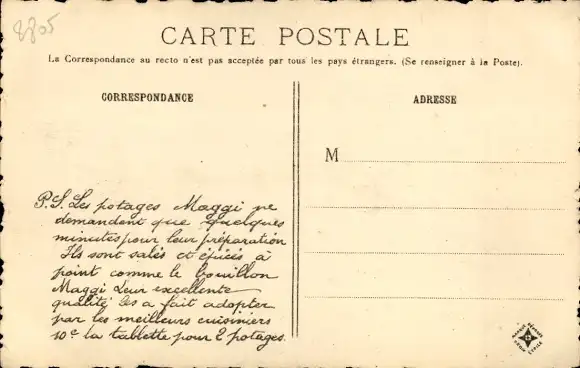 8805
CARTE POSTALE
La Correspondance au recto n'est pas acceptée par tous les pays étrangers. (Se renseigner à la Poste).
CORRESPONDANCE
ADRESSE
M
P.S. Les potages Maggi ne
demandent que quelques
minutes pour leur préparation
Ils sont salés et épicés à
point comme le bouillon
Maggi Leur excellente
qualité les a fait adopter
par les meilleurs cuisiniers
10c la tablette pour 2 potages.